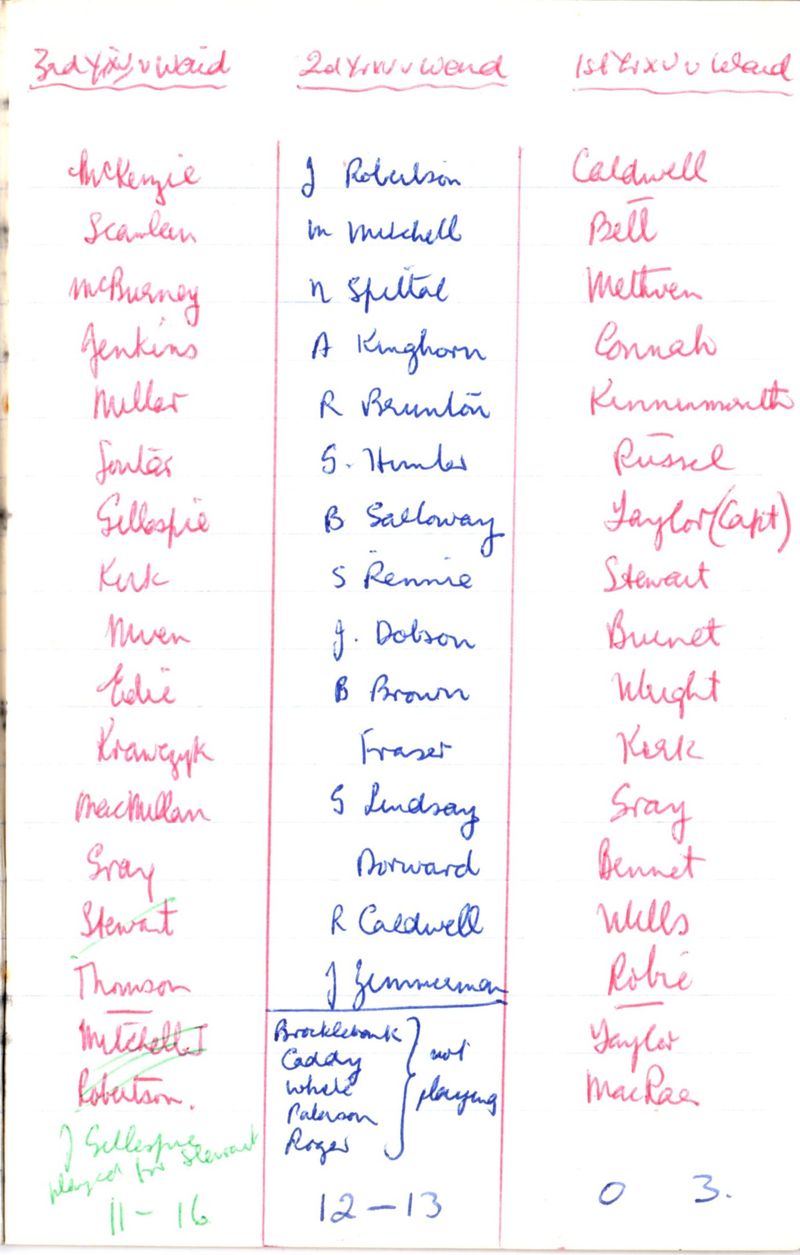 3rd Yr XV v Waid
McKenzie
Scanlan
McBurney
Jenkins
Millar
Soutar
Gillespie
Kirk
Niven
Edie
Krawczyk
MacMillan
Gray
Stewart
Thomson
Mitchell I
Robertson.
J Gillespie
played for Stewart
11 - 16
2d Yr XV v Waid
J Robertson
M Mitchell
N Spittal
A Kinghorn
R Brunton
G. Hunter
B Galloway
S Rennie
J. Dobson
B Brown
Fraser
G Lindsay
Dorward
R Caldwell
J Zimmerman
Brocklebank
Caddy
White
Paterson
Roger
not
playing
12 - 13
1st Yr XV v Waid
Caldwell
Bell
Methven
Connah
Kinnenmonth
Russel
Taylor (Capt)
Stewart
Burnet
Wright
Kirk
Gray
Bennet
Wills
Robie
Taylor
MacRae
0 3.